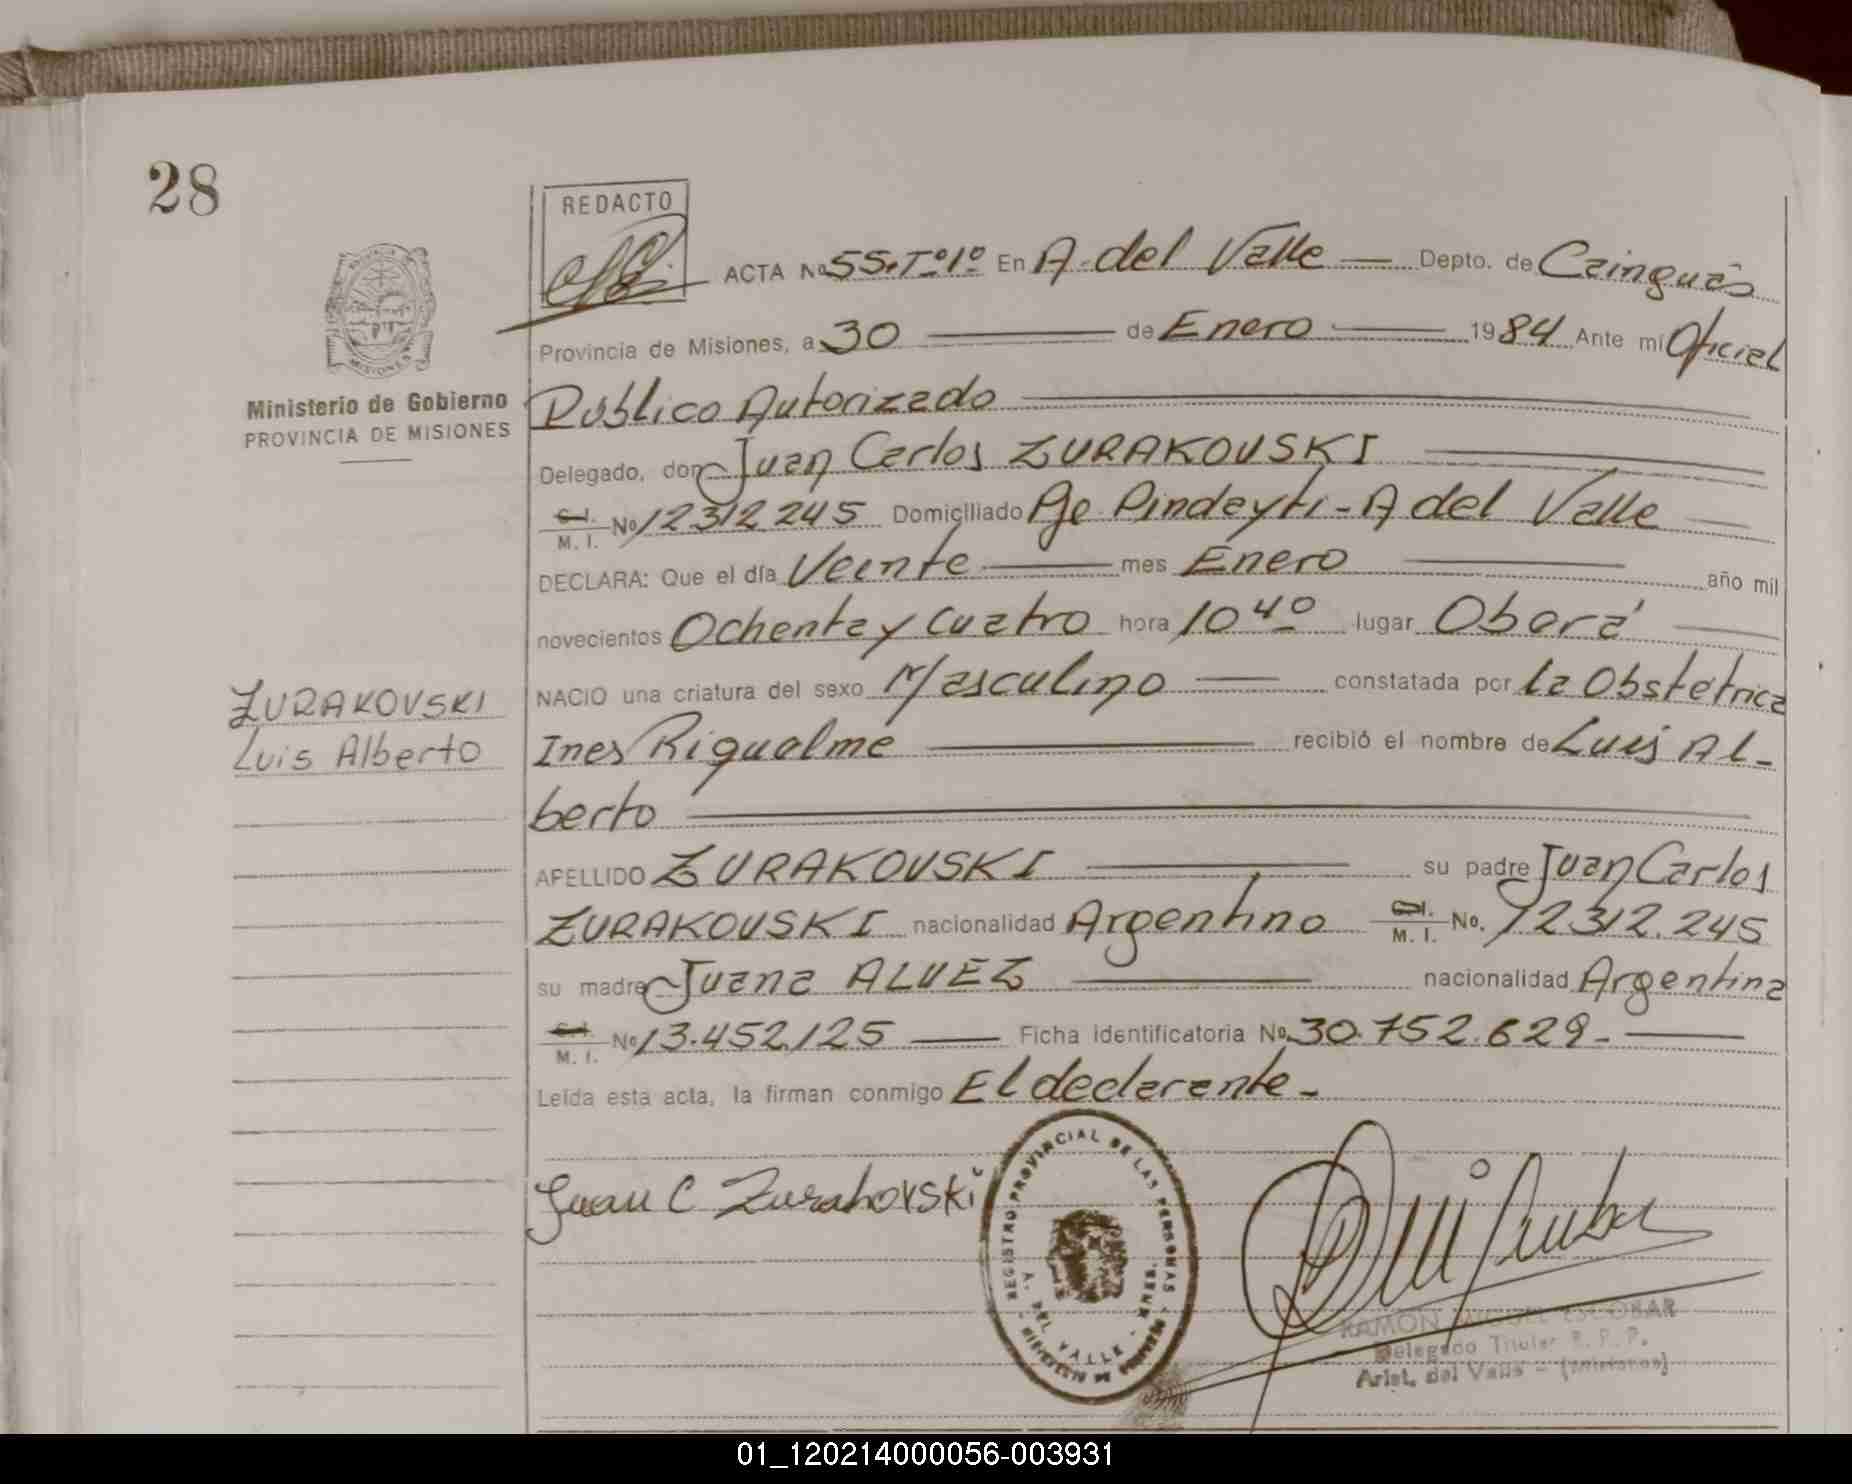 28
REDACTO
ACTA No 55. Tº 1º En A. del Valle — Depto. de Cainguás
Provincia de Misiones, a 30 — de Enero — 1984 Ante mí Oficial
Ministerio de Gobierno
PROVINCIA DE MISIONES
Público Autorizado
Delegado, don Juan Carlos ZURAKOVSKI
C.I. M. I. No 12312245 Domiciliado Pje Pindayti - A del Valle
DECLARA: Que el día Veinte — mes Enero — año mil
novecientos Ochenta y Cuatro hora 10 40 lugar Oberá
NACIO una criatura del sexo Masculino — constatada por la Obstetrica
ZURAKOVSKI
Luis Alberto
Ines Riqualme — recibió el nombre de Luis Al-
berto
APELLIDO ZURAKOVSKI — su padre Juan Carlos
ZURAKOVSKI nacionalidad Argentino C.I. M. I. No. 12312.245
su madre Juana ALVEZ — nacionalidad Argentina
C.I. M. I. No 13.452.125 — Ficha identificatoria No. 30.752.629.-
Leída esta acta, la firman conmigo El declarante -
Juan C Zurakovski
REGISTRO PROVINCIAL DE LAS PERSONAS
A. DEL VALLE
RAMON MIGUEL ESCOBAR
Delegado Titular R. P. P.
Arist. del Valle - (Misiones)
MISIONES
01_120214000056-003931